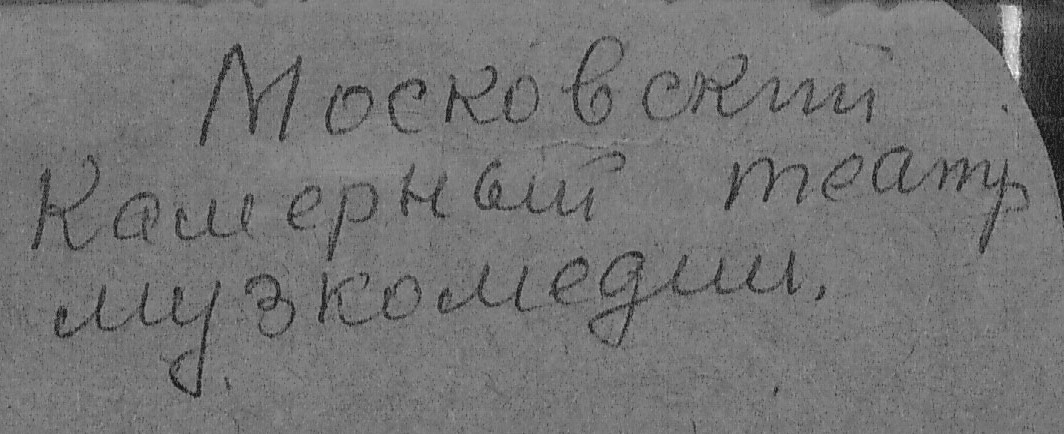 Московский
Камерный театр
музкомедии.